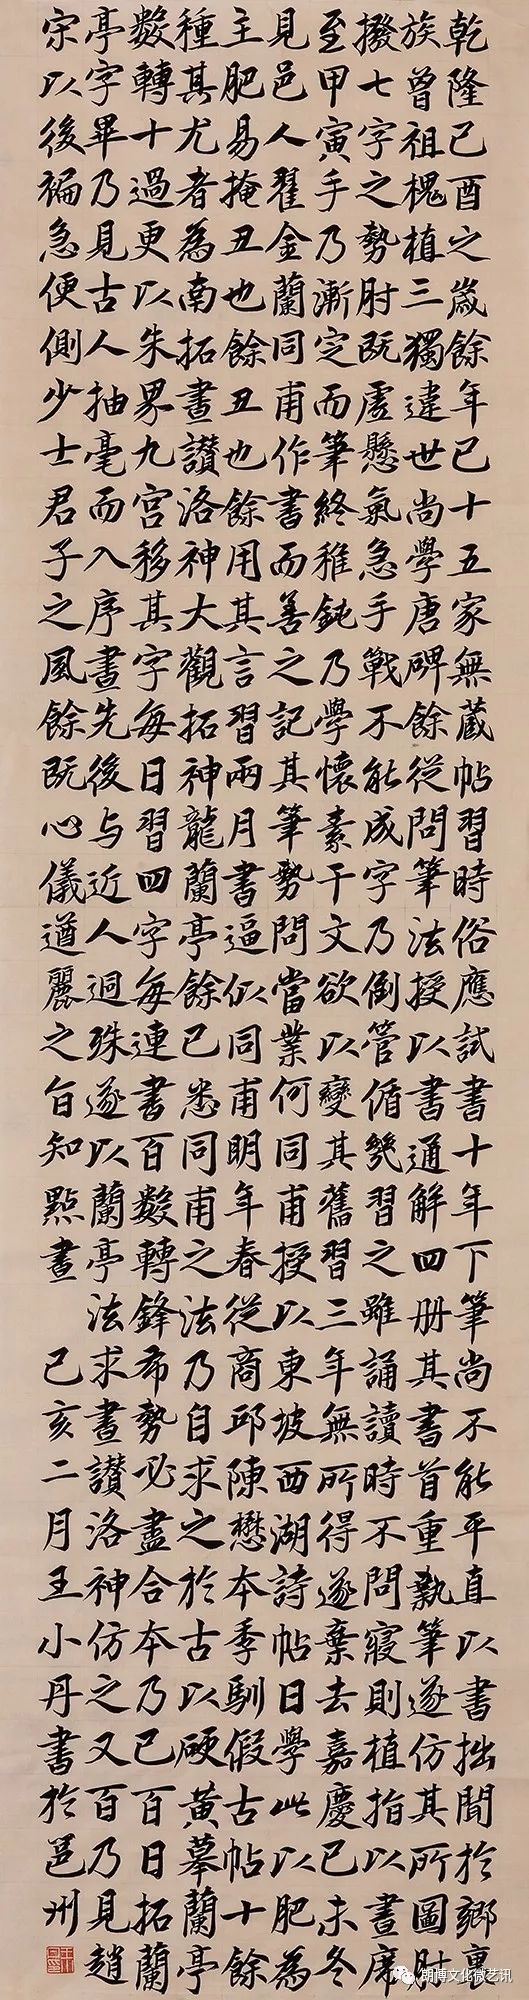 乾隆己酉之歲餘年已十五家無蔵帖習時俗應試書十年下筆尚不能平直以書拙聞於鄉裏
族曾祖槐植三獨違世尚學唐碑餘從問筆法授以書通解四册其書首重執筆遂仿其所圖肘
撥七字之勢肘既虛懸氣急手戰不能成字乃倒管循幾習之雖誦讀時不問寢則植指以畫席
至甲寅手乃漸定而筆終稚鈍乃學懷素千文欲以變其舊習三年無所得遂棄去嘉慶已未冬
見邑人翟金蘭同甫作書而善之記其筆勢問當業何同甫授以東坡西湖詩帖日學此以肥為
主肥易掩丑也餘丑也餘用其言習兩月書逼似同甫明年春從商邱陳懋本季馴假古帖十餘
種其尤者為南拓畫讚洛神大觀拓神龍蘭亭餘已悉同甫之法乃自求之於古以硬黃摹蘭亭
數轉十過更以朱界九宮移其字每日習四字每連書百數轉鋒布勢必盡合本乃已百日拓蘭
亭字畢乃見古人抽毫而入序畫先後与近人迥殊遂以蘭亭法求畫讚洛神仿之又百乃見趙
宋以後褊急便側少士君子之風餘既心儀遒麗之旨知點畫
己亥二月王小丹書於邕州
朗博文化微艺讯